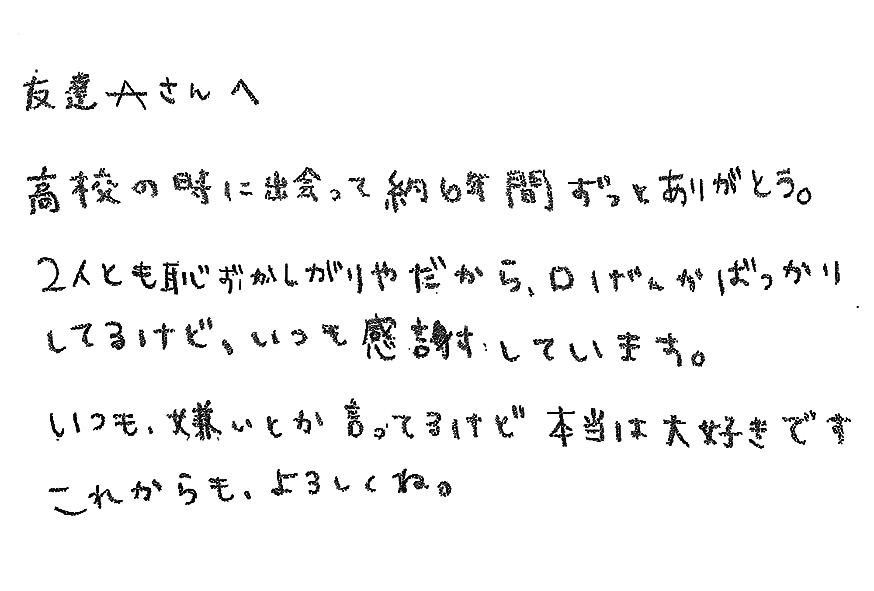 友達Aさんへ
高校の時に出会って約6年間ずっとありがとう。
2人とも恥ずかしがりやだから、口げんかばっかり
してるけど、いつも感謝しています。
いつも、嫌いとか言ってるけど本当は大好きです
これからも、よろしくね。